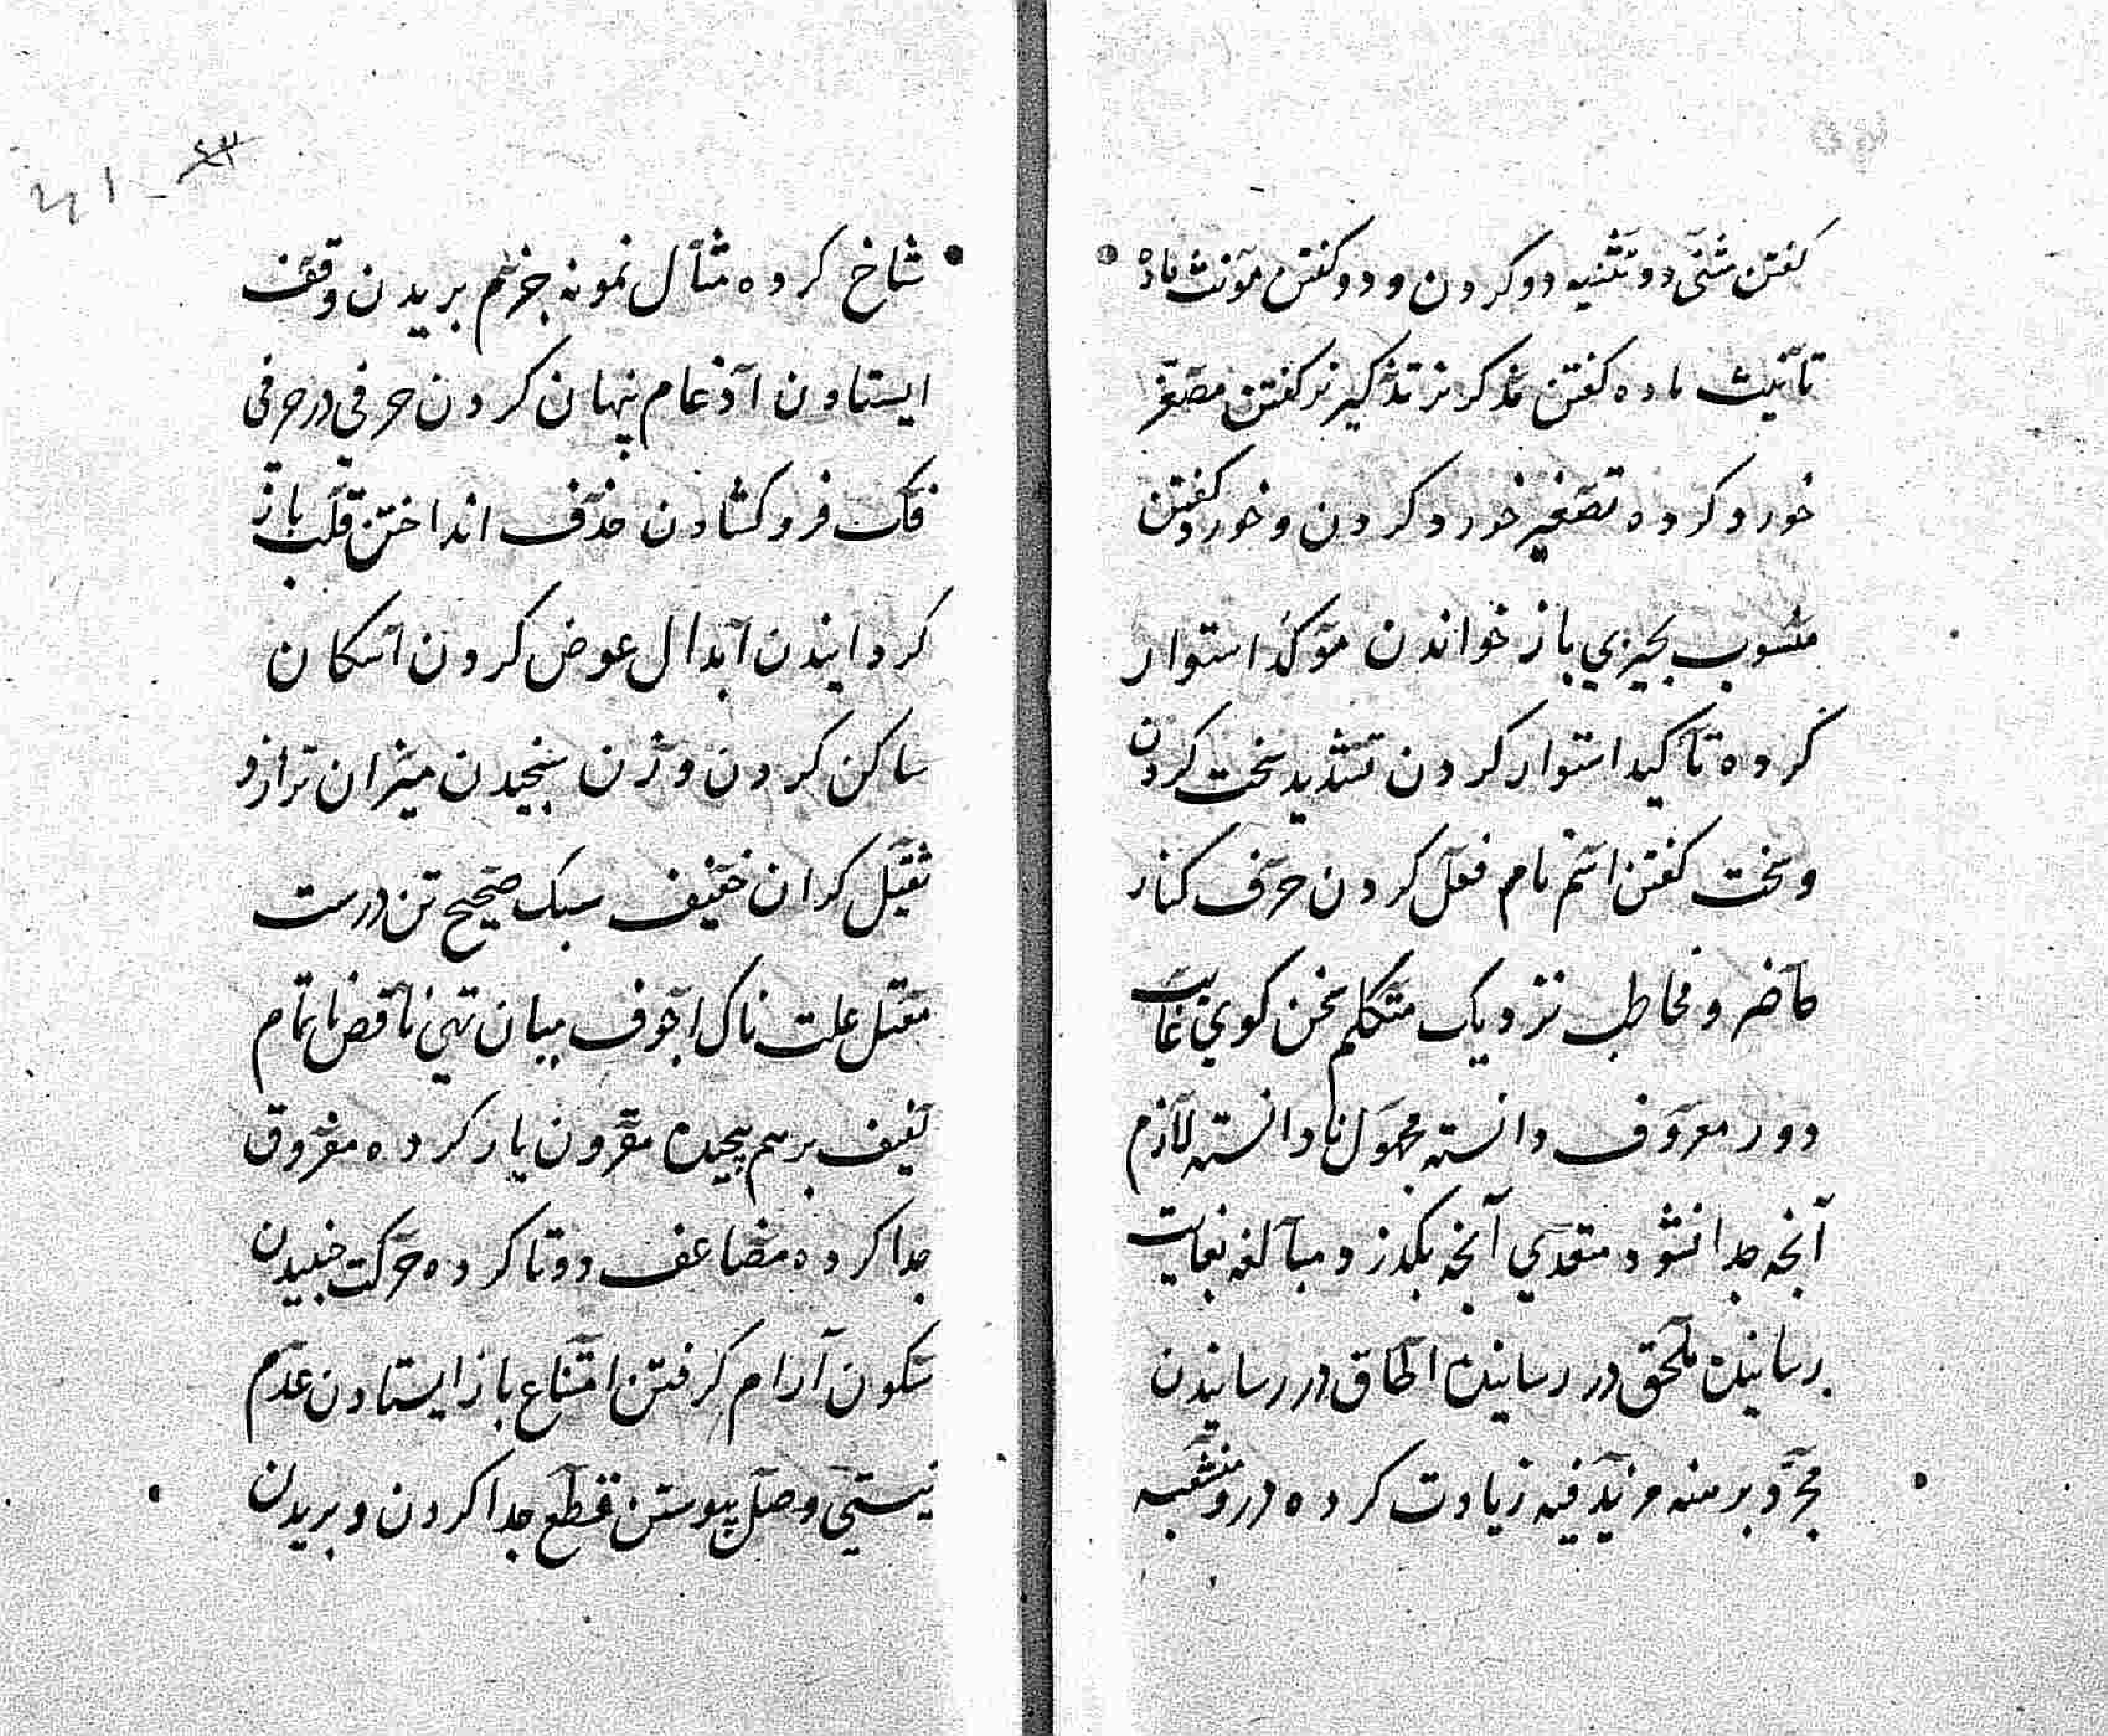 کفتن مثنی دو تثنیه دو کردن و دو کفتن مونث ماده
تأنیث ماده کفتن مذکر نر تذکیر نر کفتن مصغر
خورد کرده تصغیر خورد کردن و خورد کفتن
منسوب بچیزی باز خواندن موکد استوار
کرده تاکید استوار کردن تشدید سخت کردن
و سخت کفتن اسم نام فعل کردن حرف کنار
حاضر و مخاطب نزدیک متکلم سخن کوی غایب
دور معروف دانسته مجهول نادانسته لازم
آنجه جدا نشود متعدی آنجه بکذرد و مبالغه بغایت
رسانیدن ملحق در رسانیدن الحاق در رسانیدن
مجرد برهنه مزید فیه زیادت کرده درو منشعبه
۴۱ - ۴۳
شاخ کرده مثال نمونه جزم بریدن وقف
ایستادن ادغام پنهان کردن حرفی در حرفی
فک فرو کشادن حذف انداختن قلب باز
کردانیدن ابدال عوض کردن اسکان
ساکن کردن وزن سنجیدن میزان ترازو
ثقیل کران خفیف سبک صحیح تن درست
معتل علت ناک اجوف میان تهی ناقص ناتمام
لفیف برهم پیچیده مقرون یار کرده مفروق
جدا کرده مضاعف دوتا کرده حرکت جنبیدن
سکون آرام کرفتن امتناع باز ایستادن عدم
نیستی وصل پیوستن قطع جدا کردن و بریدن